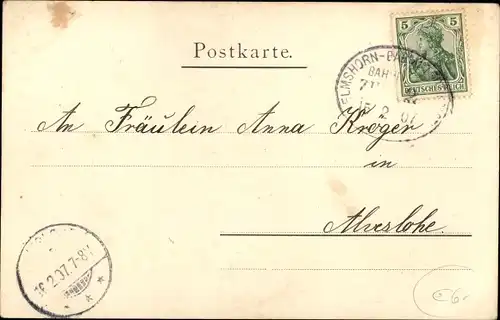 5 5
Postkarte.
DEUTSCHES REICH
ELMSHORN-
BAH
7
15 2 07
An Fräulein Anna Kröger
in
Alveslohe.
2.07.7-8V